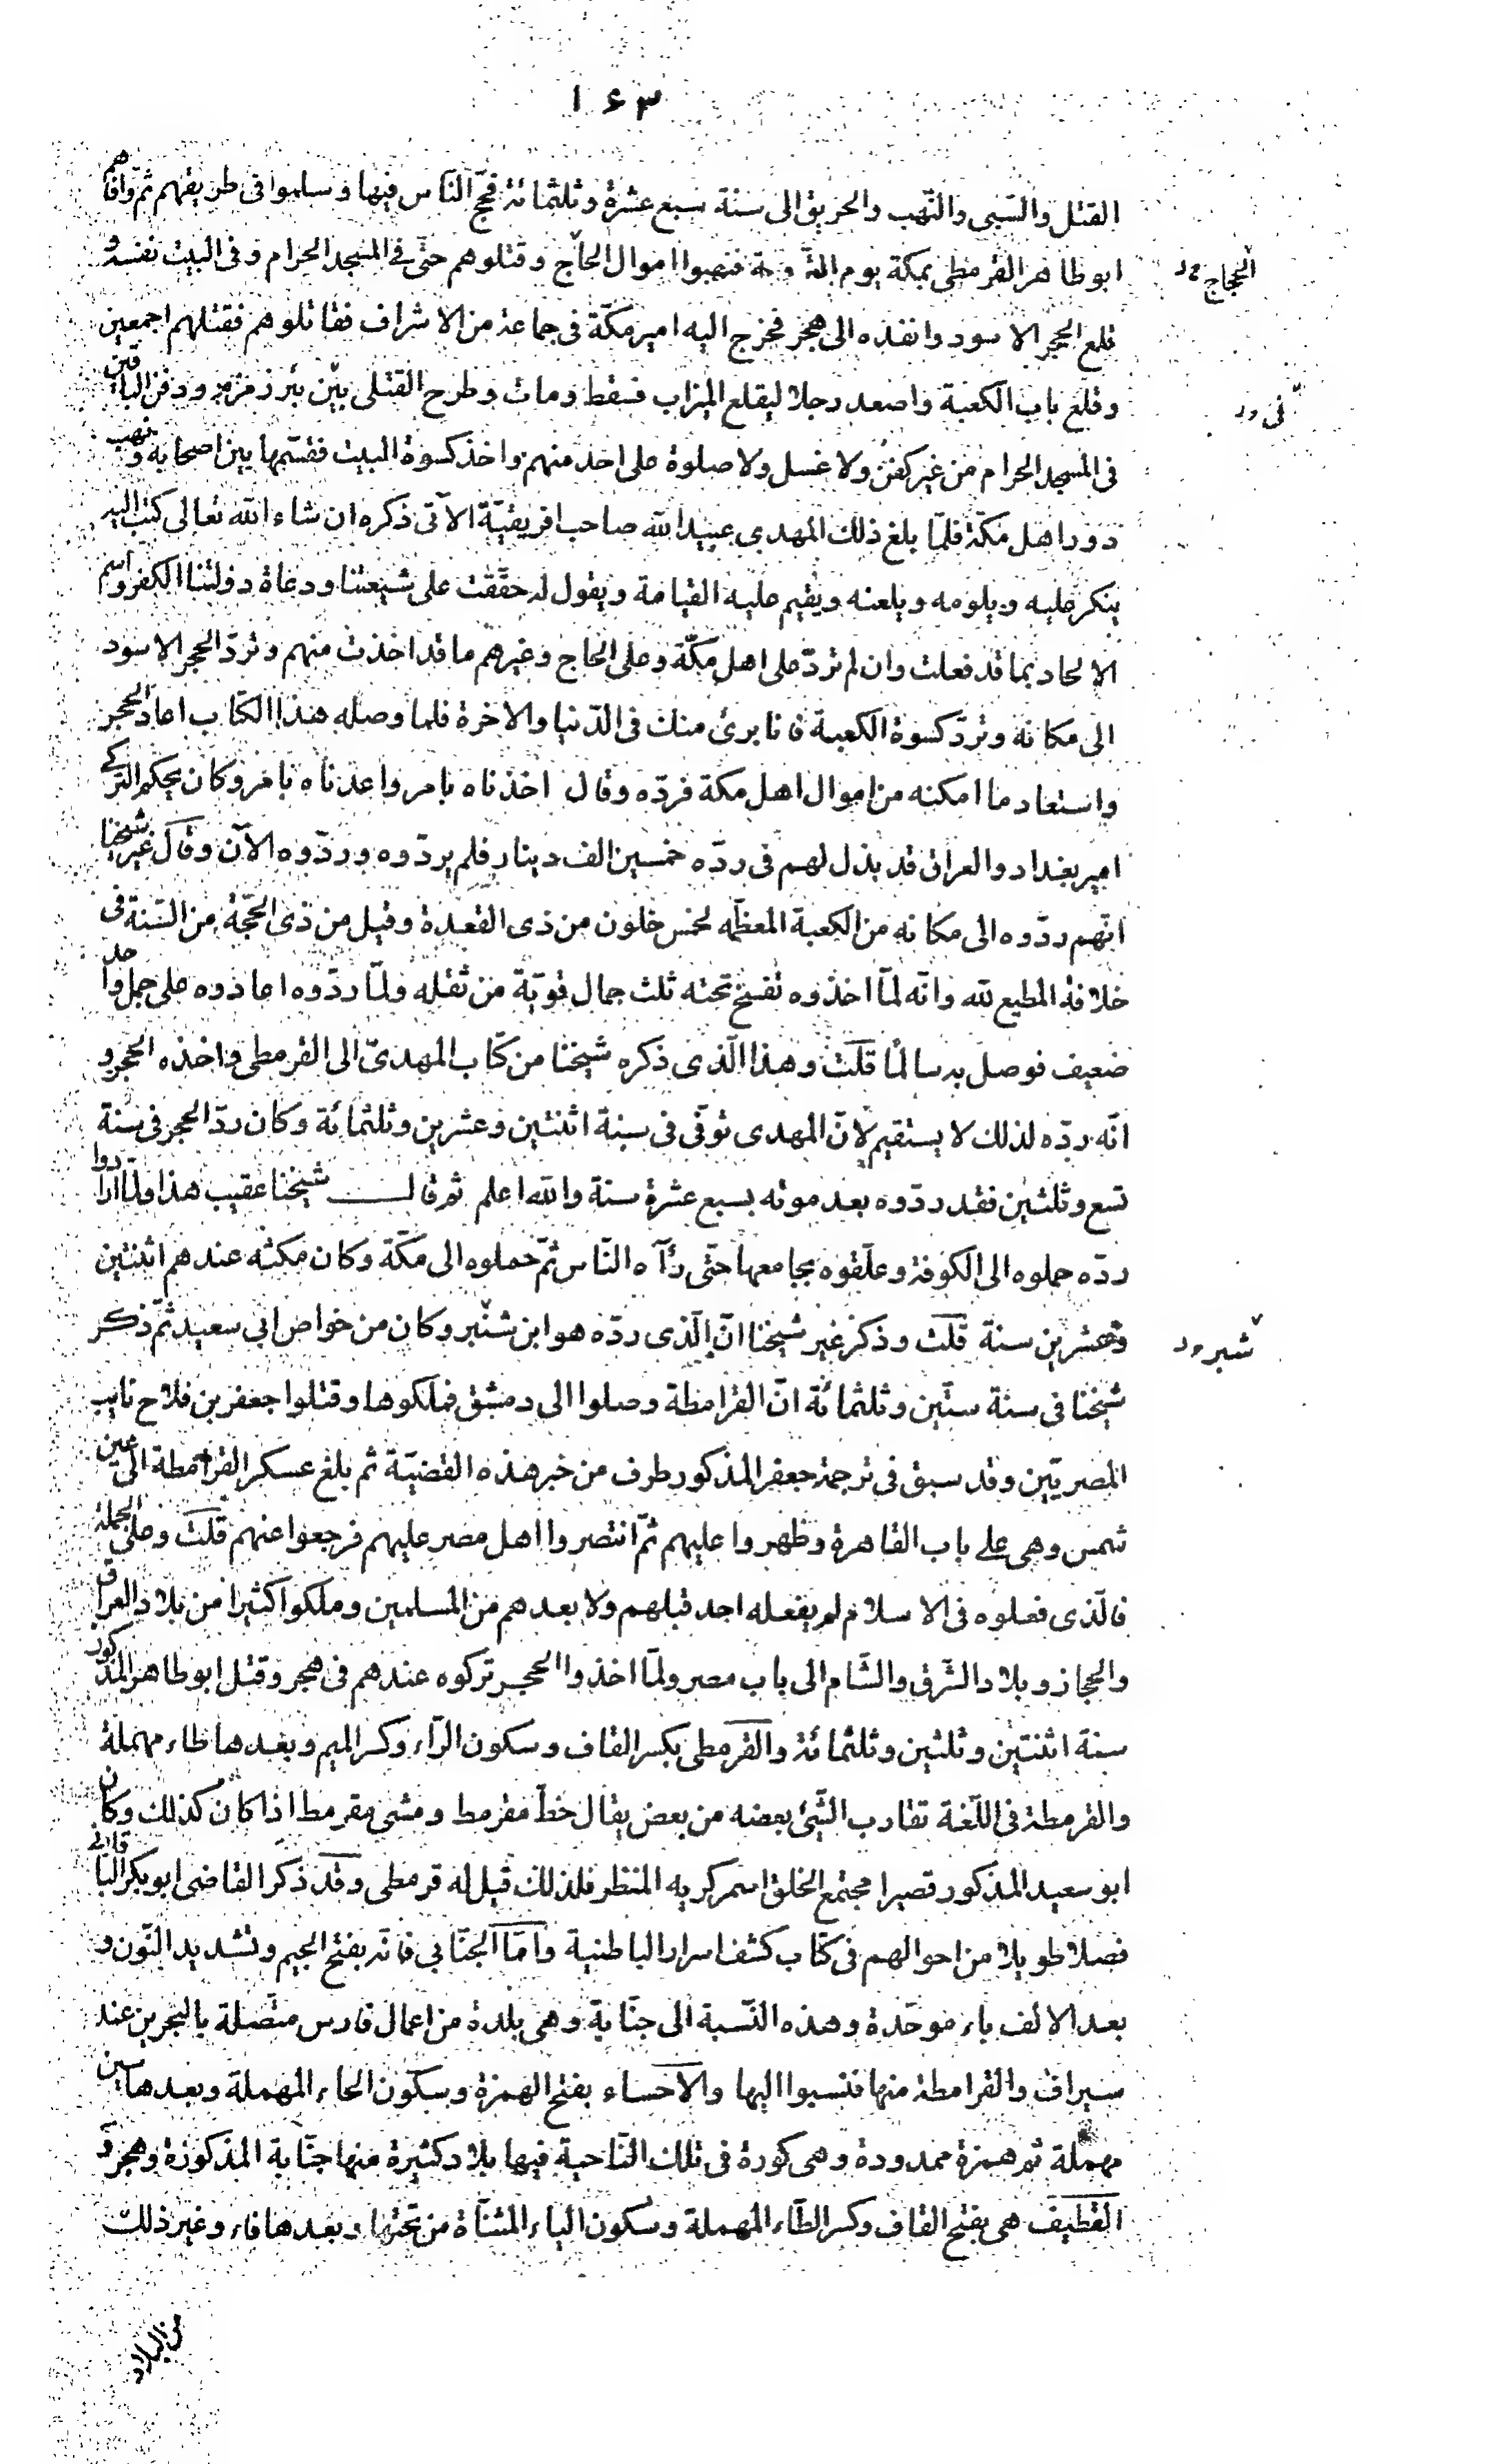 ١٤٣
القتل والسّبى والنّهب والحريق الى سنة سبع عشرة وثلثمائة فحجّ النّاس فيها وسلموا فى طريقهم ثمّ وافاهم
ابوطاهر القرمطى بمكة يوم التّروية فنهبوا اموال الحاّج وقتلوهم حتّى فى المسجد الحرام وفى البيت نفسه و
قلع الحجر الاسود وانفذه الى هجر فخرج اليه امير مكّة فى جماعة من الاشراف فقاتلوهم فقتلهم اجمعين
وقلع باب الكعبة واصعد رجلا ليقلع الميزاب فسقط ومات وطرح القتلى بين بئر زمزم ودفن الباقين
فى المسجد الحرام من غير كفن ولا غسل ولا صلوة على احد منهم واخذ كسوة البيت فقسّمها بين اصحابه ونهب
دور اهل مكّة فلمّا بلغ ذلك المهدى عبيد الله صاحب افريقيّة الآتى ذكره ان شاء الله تعالى كتب اليه
ينكر عليه ويلومه ويلعنه ويقيم عليه القيامة ويقول له حقّقت على شيعتنا ودعاة دولتنا الكفر واسم
الالحاد بما قد فعلت وان لم تردّ على اهل مكّة وعلى الحاج وغيرهم ما قد اخذت منهم وتردّ الحجر الاسود
الى مكانه وتردّ كسوة الكعبة فانا برئ منك فى الدّنيا والاخرة فلما وصله هذا الكتاب اعاد الحجر
واستعاد ما امكنه من اموال اهل مكة فردّه وقال اخذناه بامر واعدناه بامر وكان بجكم التركى
امير بغداد والعراق قد بذل لهم فى ردّه خمسين الف دينار فلم يردّوه وردّوه الآن وقال غير شيخنا
انّهم ردّوه الى مكانه من الكعبة المعظّمه لخمس خلون من ذى القعدة وقيل من ذى الحجّة من السّنة فى
خلافة المطيع لله وانّه لمّا اخذوه تفسّخ تحته ثلث جمال قويّة من ثقله ولمّا ردّوه اعادوه على جمل واحد
ضعيف فوصل به سالمًا قلت وهذا الّذى ذكره شيخنا من كتاب المهدىّ الى القرمطى واخذه الحجر و
انّه ردّه لذلك لا يستقيم لانّ المهدى توفّى فى سنة اثنتين وعشرين وثلثمائة وكان ردّ الحجر فى سنة
تسع وثلثين فقد ردّوه بعد موته بسبع عشرة سنة والله اعلم ثم قال شيخنا عقيب هذا ولمّا ارادوا
ردّه حملوه الى الكوفة وعلّقوه بجامعها حتّى رآه النّاس ثمّ حملوه الى مكّة وكان مكثه عندهم اثنتين
وعشرين سنة قلت وذكر غير شيخنا انّ الّذى ردّه هو ابن شنبر وكان من خواص ابى سعيد ثمّ ذكر
شيخنا فى سنة ستّين وثلثمائة انّ القرامطة وصلوا الى دمشق فملكوها وقتلوا جعفر بن فلاح نايب
المصريّين وقد سبق فى ترجمة جعفر المذكور طرف من خبر هذه القضيّة ثم بلغ عسكر القرامطة الى عين
شمس وهى على باب القاهرة وظهروا عليهم ثمّ انتصروا اهل مصر عليهم فرجعوا عنهم قلت وعلى الجملة
فالّذى فعلوه فى الاسلام لم يفعله احد قبلهم ولا بعدهم من المسلمين وملكوا كثيرا من بلاد العراق
والحجاز وبلاد الشّرق والشّام الى باب مصر ولمّا اخذوا الحجر تركوه عندهم فى هجر وقتل ابوطاهر المذكور
سنة اثنتين وثلثين وثلثمائة والقرمطى بكسر القاف وسكون الرّاء وكسر الميم وبعدها طاء مهملة
والقرمطة فى اللّغة تقارب الشّيئ بعضه من بعض يقال خطّ مقرمط ومشى مقرمط اذا كان كذلك وكان
ابوسعيد المذكور قصيرا مجتمع الخلق اسمر كريه المنظر فلذلك قيل له قرمطى وقد ذكر القاضى ابوبكر الباقلانى
فصلا طويلا من احوالهم فى كتاب كشف اسرار الباطنية وامّا الجنّابى فانّه بفتح الجيم وتشديد النّون و
بعد الالف باء موحّدة وهذه النّسبة الى جنّابة وهى بلدة من اعمال فارس متّصلة بالبحرين عند
سيراف والقرامطة منها فنسبوا اليها والاحساء بفتح الهمزة وسكون الحاء المهملة وبعدها سين
مهملة ثم همزة ممدودة وهى كورة فى تلك النّاحية فيها بلاد كثيرة منها جنّابة المذكورة وهجر و
القطيف هى بفتح القاف وكسر الطّاء المهملة وسكون الياء المثنّاة من تحتها وبعدها فاء وغير ذلك
من البلاد
الحجاج
فى
شبر